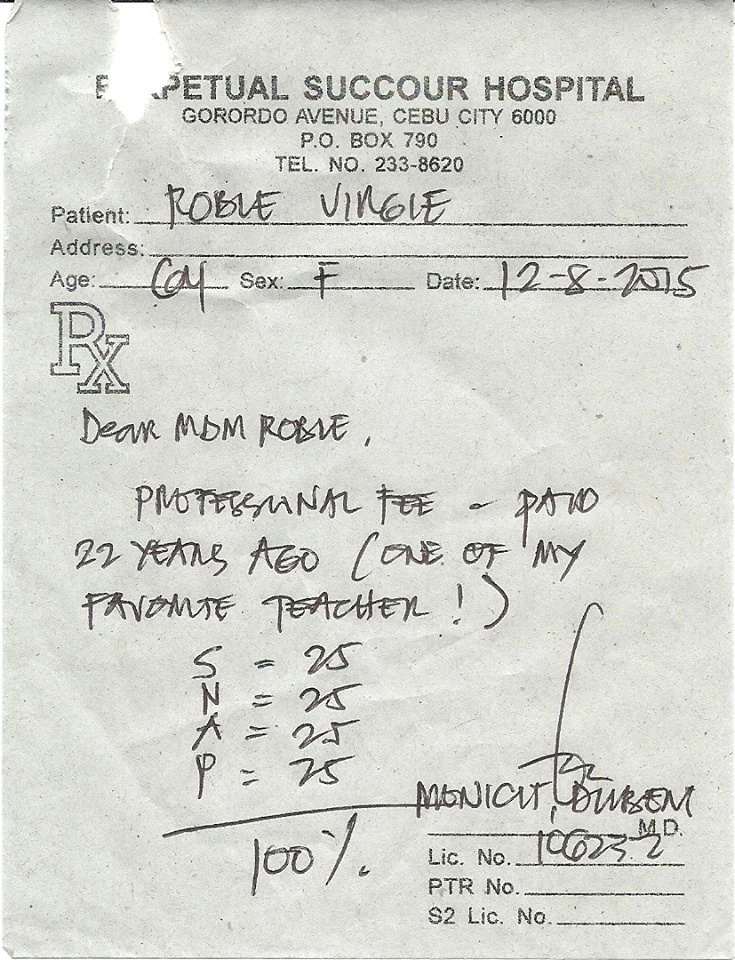 PERPETUAL SUCCOUR HOSPITAL
GORORDO AVENUE, CEBU CITY 6000
P.O. BOX 790
TEL. NO. 233-8620
Patient: ROBLE VIRGIE
Address:
Age: 64 Sex: F Date: 12-8-2015
Rx
Dear MDM ROBLE,
PROFESSIONAL FEE - PAID
22 YEARS AGO (ONE OF MY
FAVORITE TEACHER!)
S = 25
N = 25
A = 25
P = 25
100%.
M.D.
Lic. No. 106232
PTR No.
S2 Lic. No.